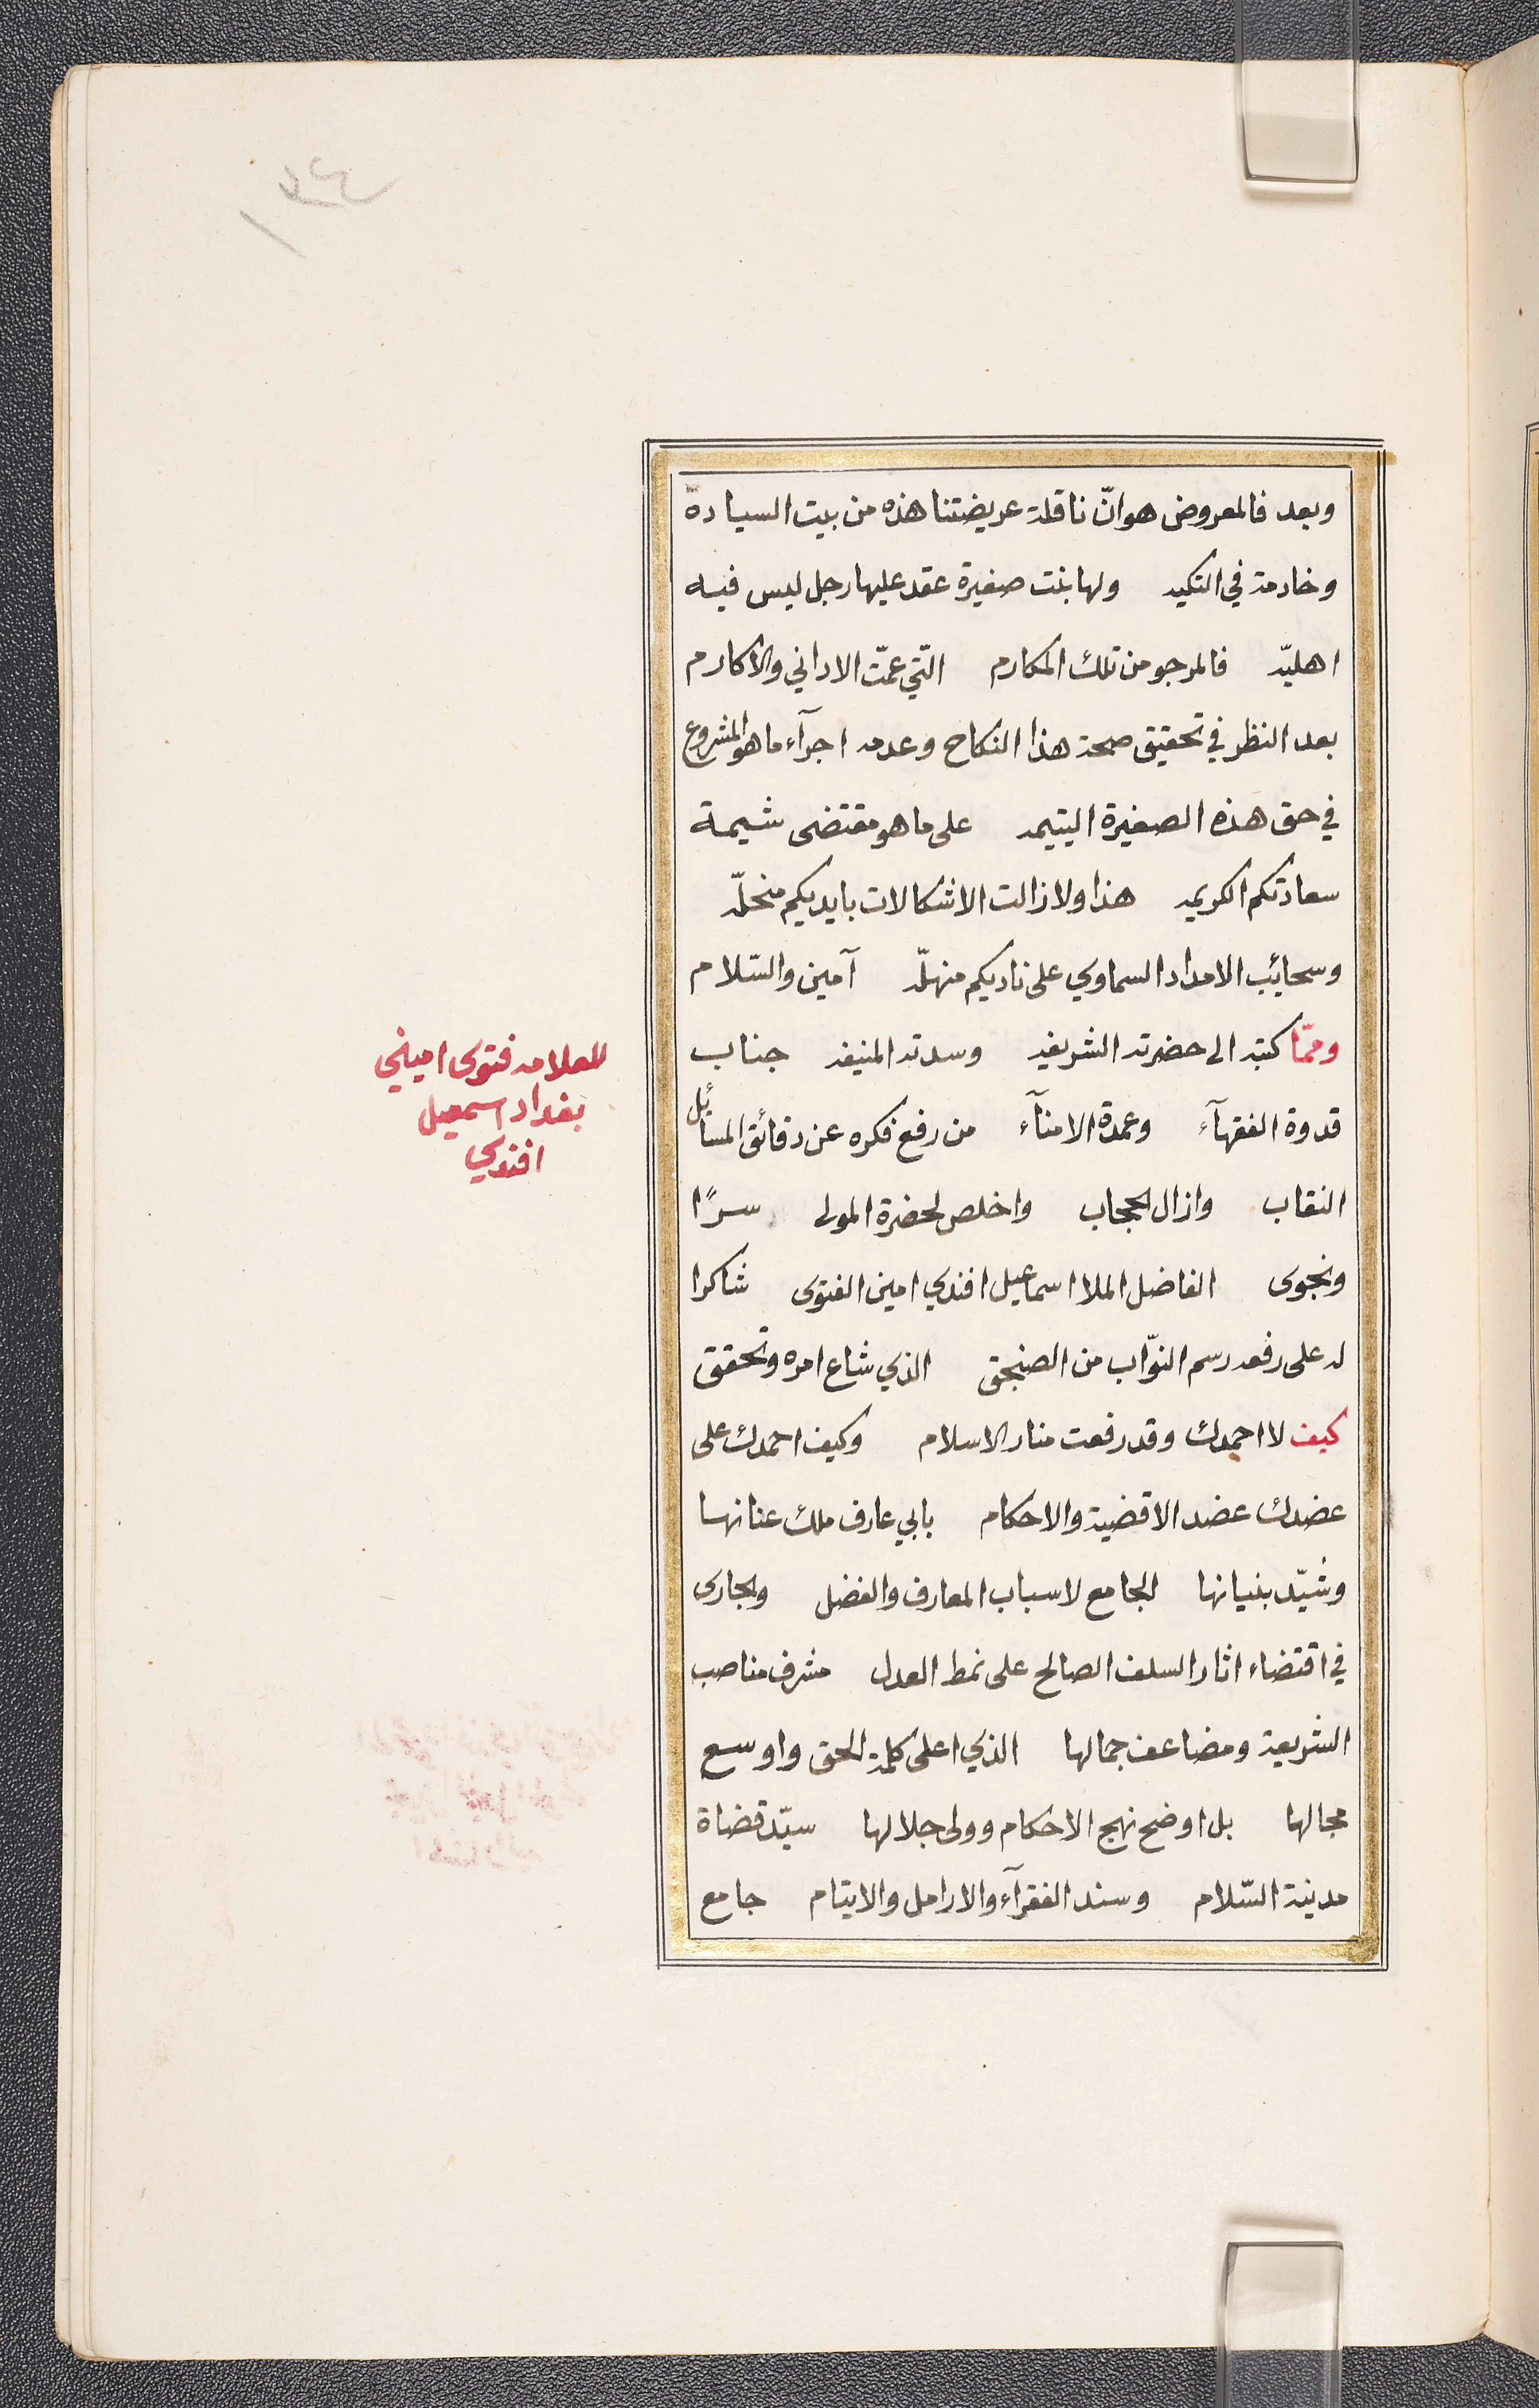 وبعد فالمعروض هو انّ ناقلة عريضتنا هذه من بيت السيادة
وخادمة في التكيه ولها بنت صغيرة عقد عليها رجل ليس فيه
اهليّه فالمرجو من تلك المكارم التّي عمّت الاداني والاكارم
بعد النظر في تحقيق صحة هذا النكاح وعدمه اجرآء ما هو المشروع
في حق هذه الصغيرة اليتيمه على ما هو مقتضى شيمة
سعادتكم الكريمه هذا ولا زالت الاشكالات بايديكم منحلّه
وسحائب الامداد السماوي على ناديكم منهلّه آمين والسّلام
وممّا كتبه الى حضرته الشريفه وسدته المنيفه جناب
قدوة الفقهآء وعمدة الامنآء من رفع فكره عن دقائق المسائل
النقاب وازال الحجاب واخلص لحضرة المولى سرًا
ونجوى الفاضل الملا اسماعيل افندي امين الفتوى شاكرا
له على رفعه رسم النوّاب من الصنجق الذي شاع امره وتحقق
كيف لا احمدك وقد رفعت منار الاسلام وكيف احمدك على
عضدك عضد الاقضية والاحكام بابي عارف ملك عنانها
وشيّد بنيانها الجامع لاسباب المعارف والفضل والجارى
في اقتضاء اثار السلف الصالح على نمط العدل مشرف مناصب
الشريعة ومضاعف جمالها الذي اعلى كلمة الحق واوسع
مجالها بل اوضح نهج الاحكام وولى جلالها سيّد قضاة
مدينة السّلام وسند الفقرآء والارامل والايتام جامع
للعلامه فتوى اميني
بغداد اسمعيل
افندي